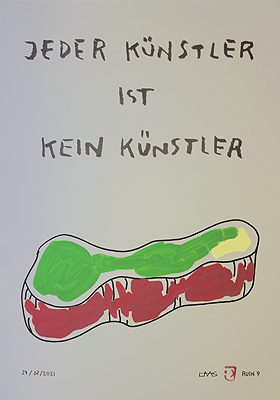 JEDER KÜNSTLER
IST
KEIN KÜNSTLER
29/07/2021
RUIN 9